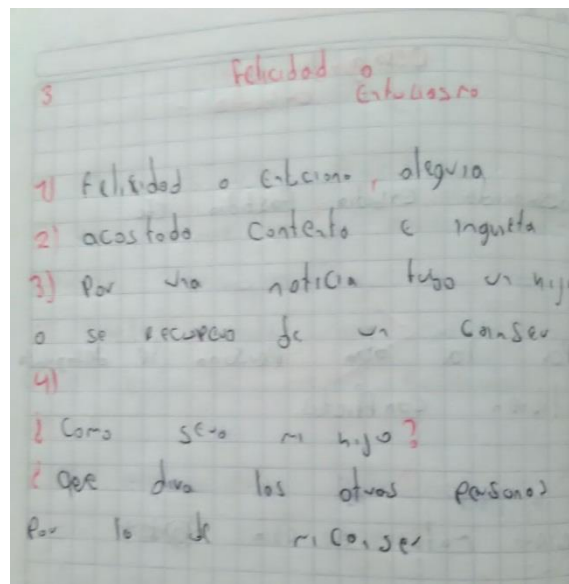 3 Felicidad o
Entuciasmo
1) Felicidad o , alegria
2) acostado contento e inquieta
3) Por una noticia tubo un hijo
o se recupero de un canser
4)
¿Como sera mi hijo?
¿Que dira los otras personas
Por lo de mi canser